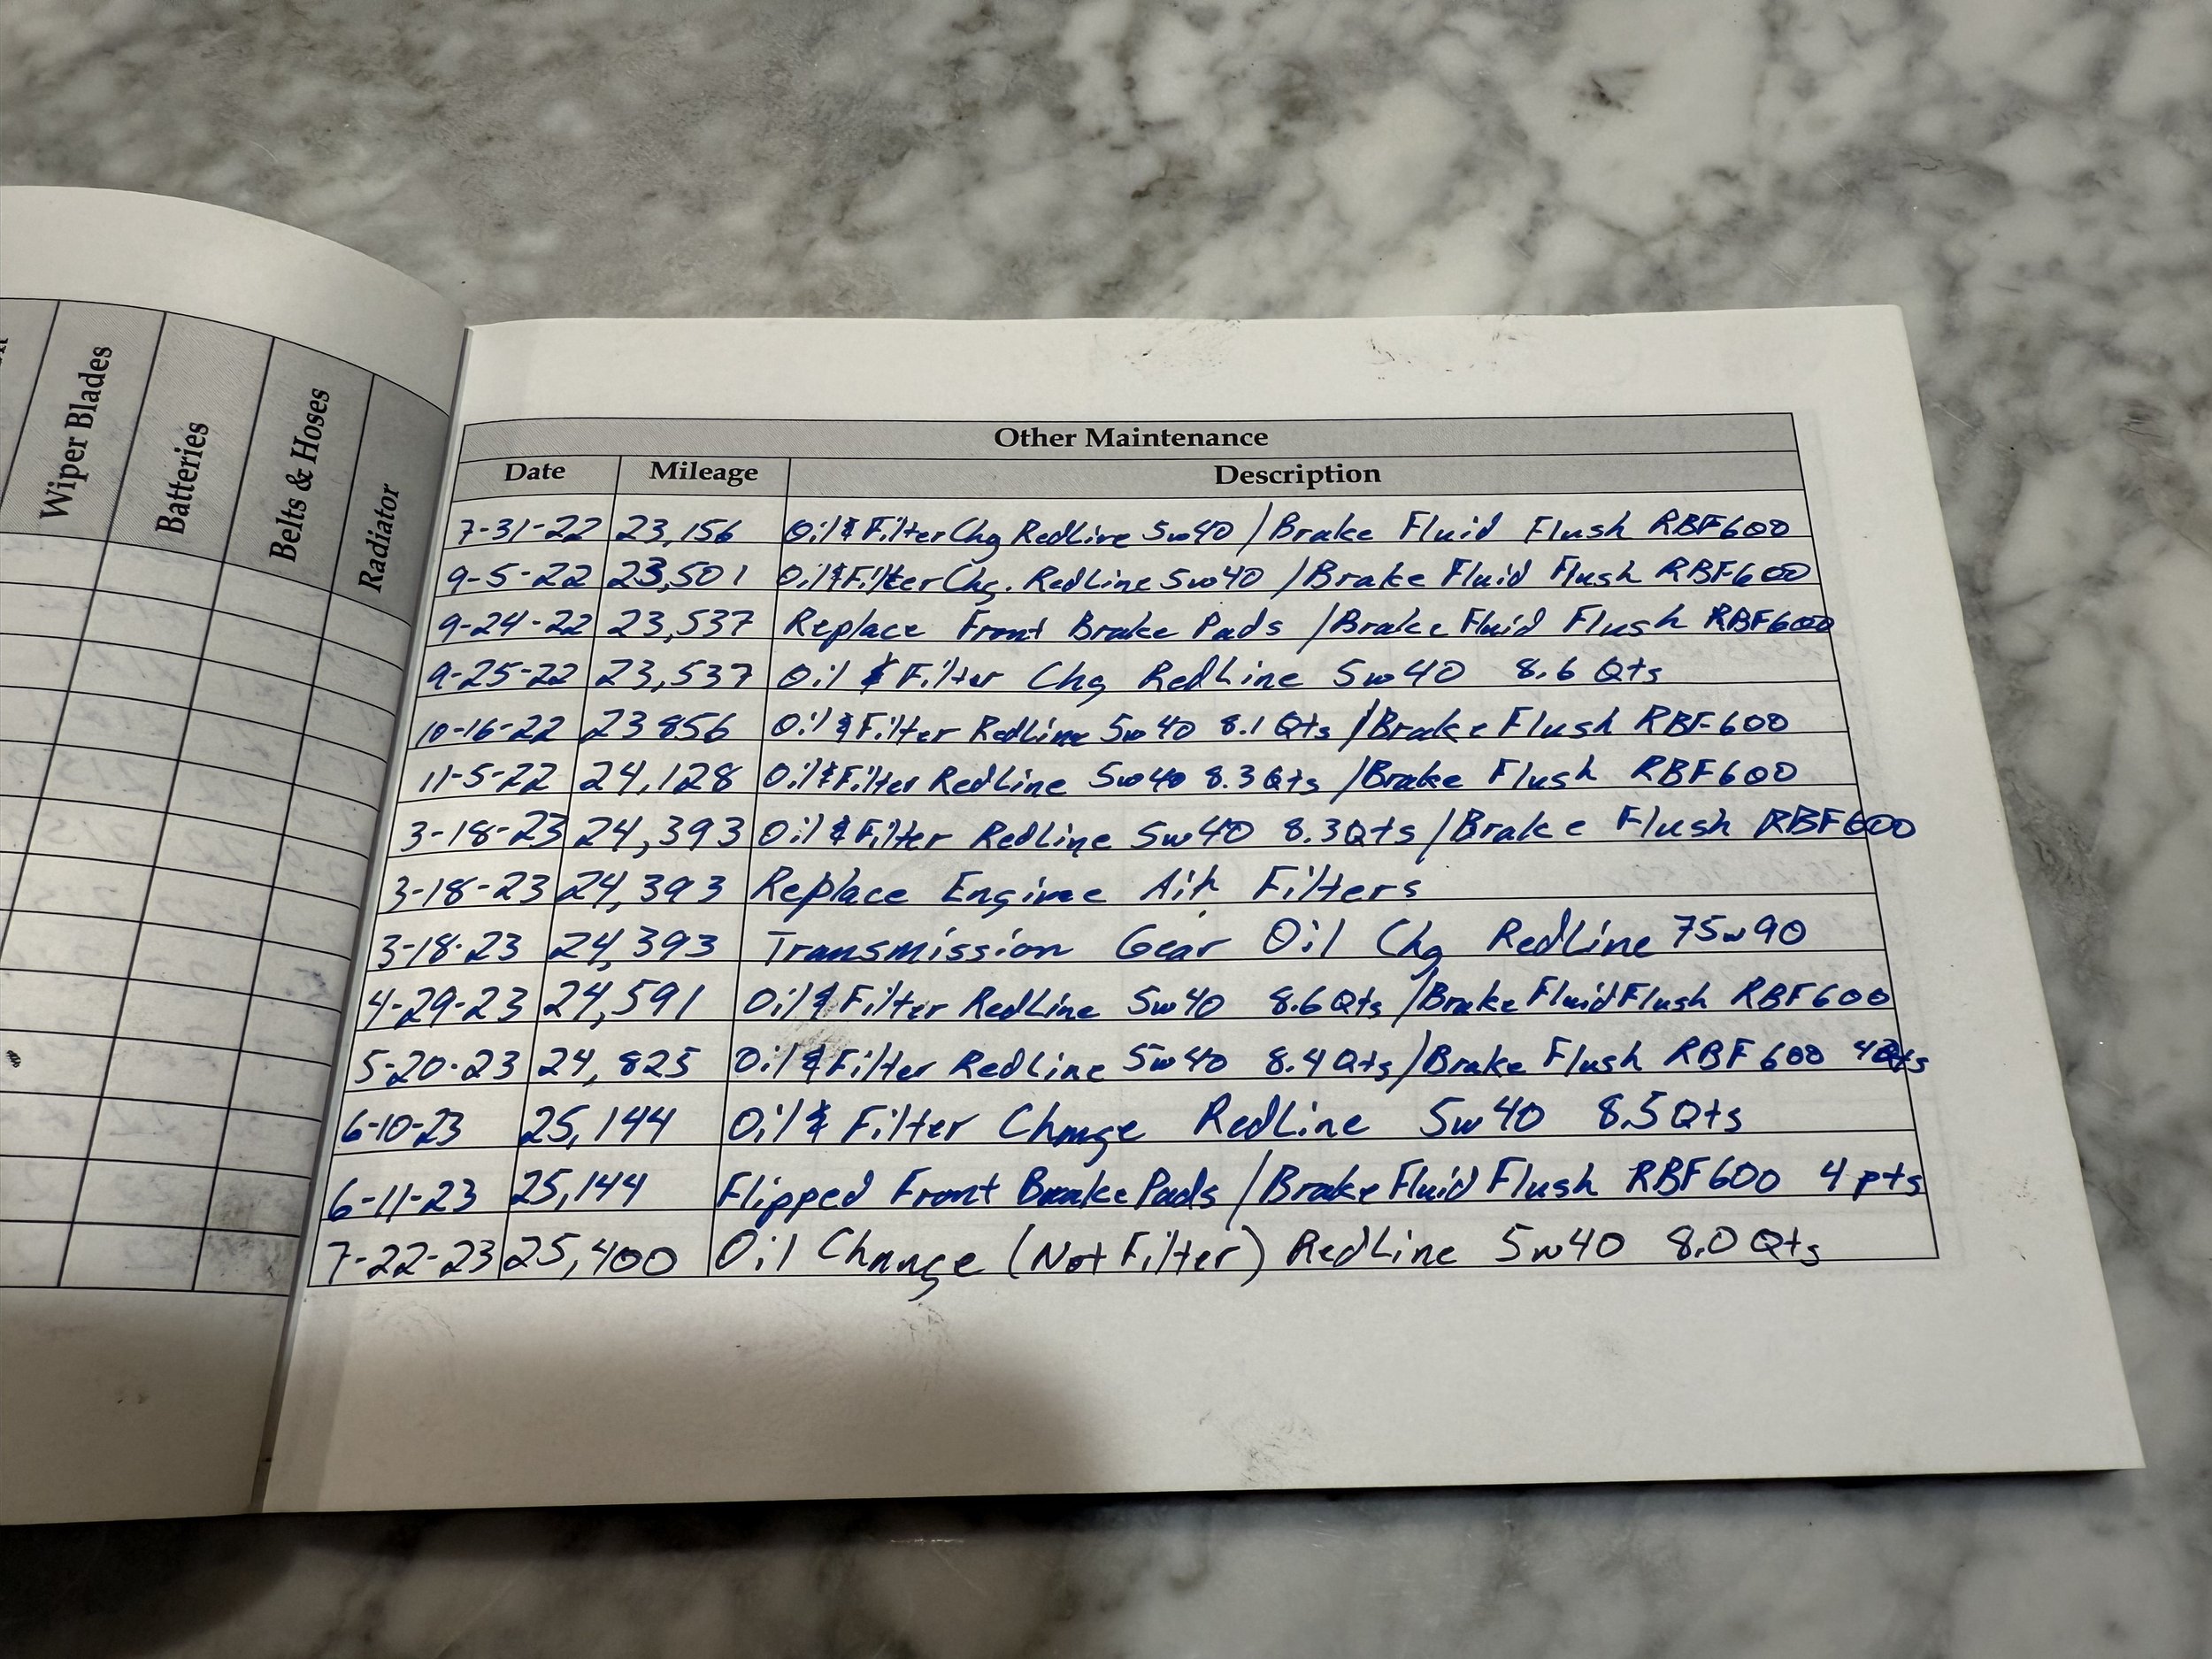 Wiper Blades
Batteries
Belts & Hoses
Radiator
Other Maintenance
Date Mileage Description
7-31-22 23,156 Oil & Filter Chg RedLine 5w40 / Brake Fluid Flush RBF600
9-5-22 23,501 Oil & Filter Chg. RedLine 5w40 / Brake Fluid Flush RBF600
9-24-22 23,537 Replace Front Brake Pads / Brake Fluid Flush RBF600
9-25-22 23,537 Oil & Filter Chg RedLine 5w40 8.6 Qts
10-16-22 23856 Oil & Filter RedLine 5w40 8.1 Qts / Brake Flush RBF600
11-5-22 24,128 Oil & Filter RedLine 5w40 8.3 Qts / Brake Flush RBF600
3-18-23 24,393 Oil & Filter RedLine 5w40 8.3Qts / Brake Flush RBF600
3-18-23 24,393 Replace Engine Air Filters
3-18-23 24,393 Transmission Gear Oil Chg RedLine 75w90
4-29-23 24,591 Oil & Filter RedLine 5w40 8.6Qts / Brake Fluid Flush RBF600
5-20-23 24,825 Oil & Filter RedLine 5w40 8.4Qts / Brake Flush RBF600
6-10-23 25,144 Oil & Filter Change RedLine 5w40 8.5Qts
6-11-23 25,144 Flipped Front Brake Pads / Brake Fluid Flush RBF600 4 pts
7-22-23 25,400 Oil Change (Not Filter) RedLine 5w40 8.0 Qts